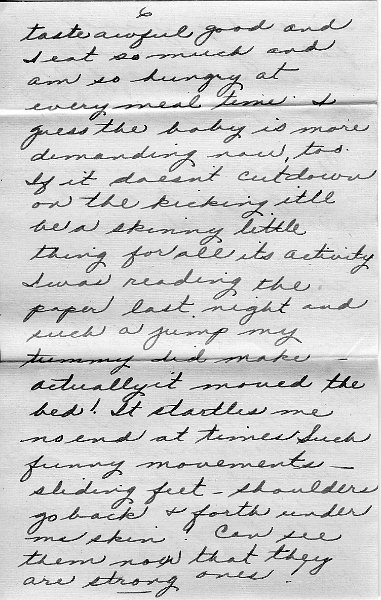 6
taste awful good and
I eat so much and
am so hungry at
every meal time. I
guess the baby is more
demanding now, too.
If it doesn't cut down
on the kicking it'll
be a skinny little
thing for all its activity
I was reading the
paper last night and
such a jump my
tummy did make -
actually it moved the
bed! It startles me
no end at times Such
funny movements -
sliding feet - shoulders
go back & forth under
my skin! Can see
them now that they
are strong ones!